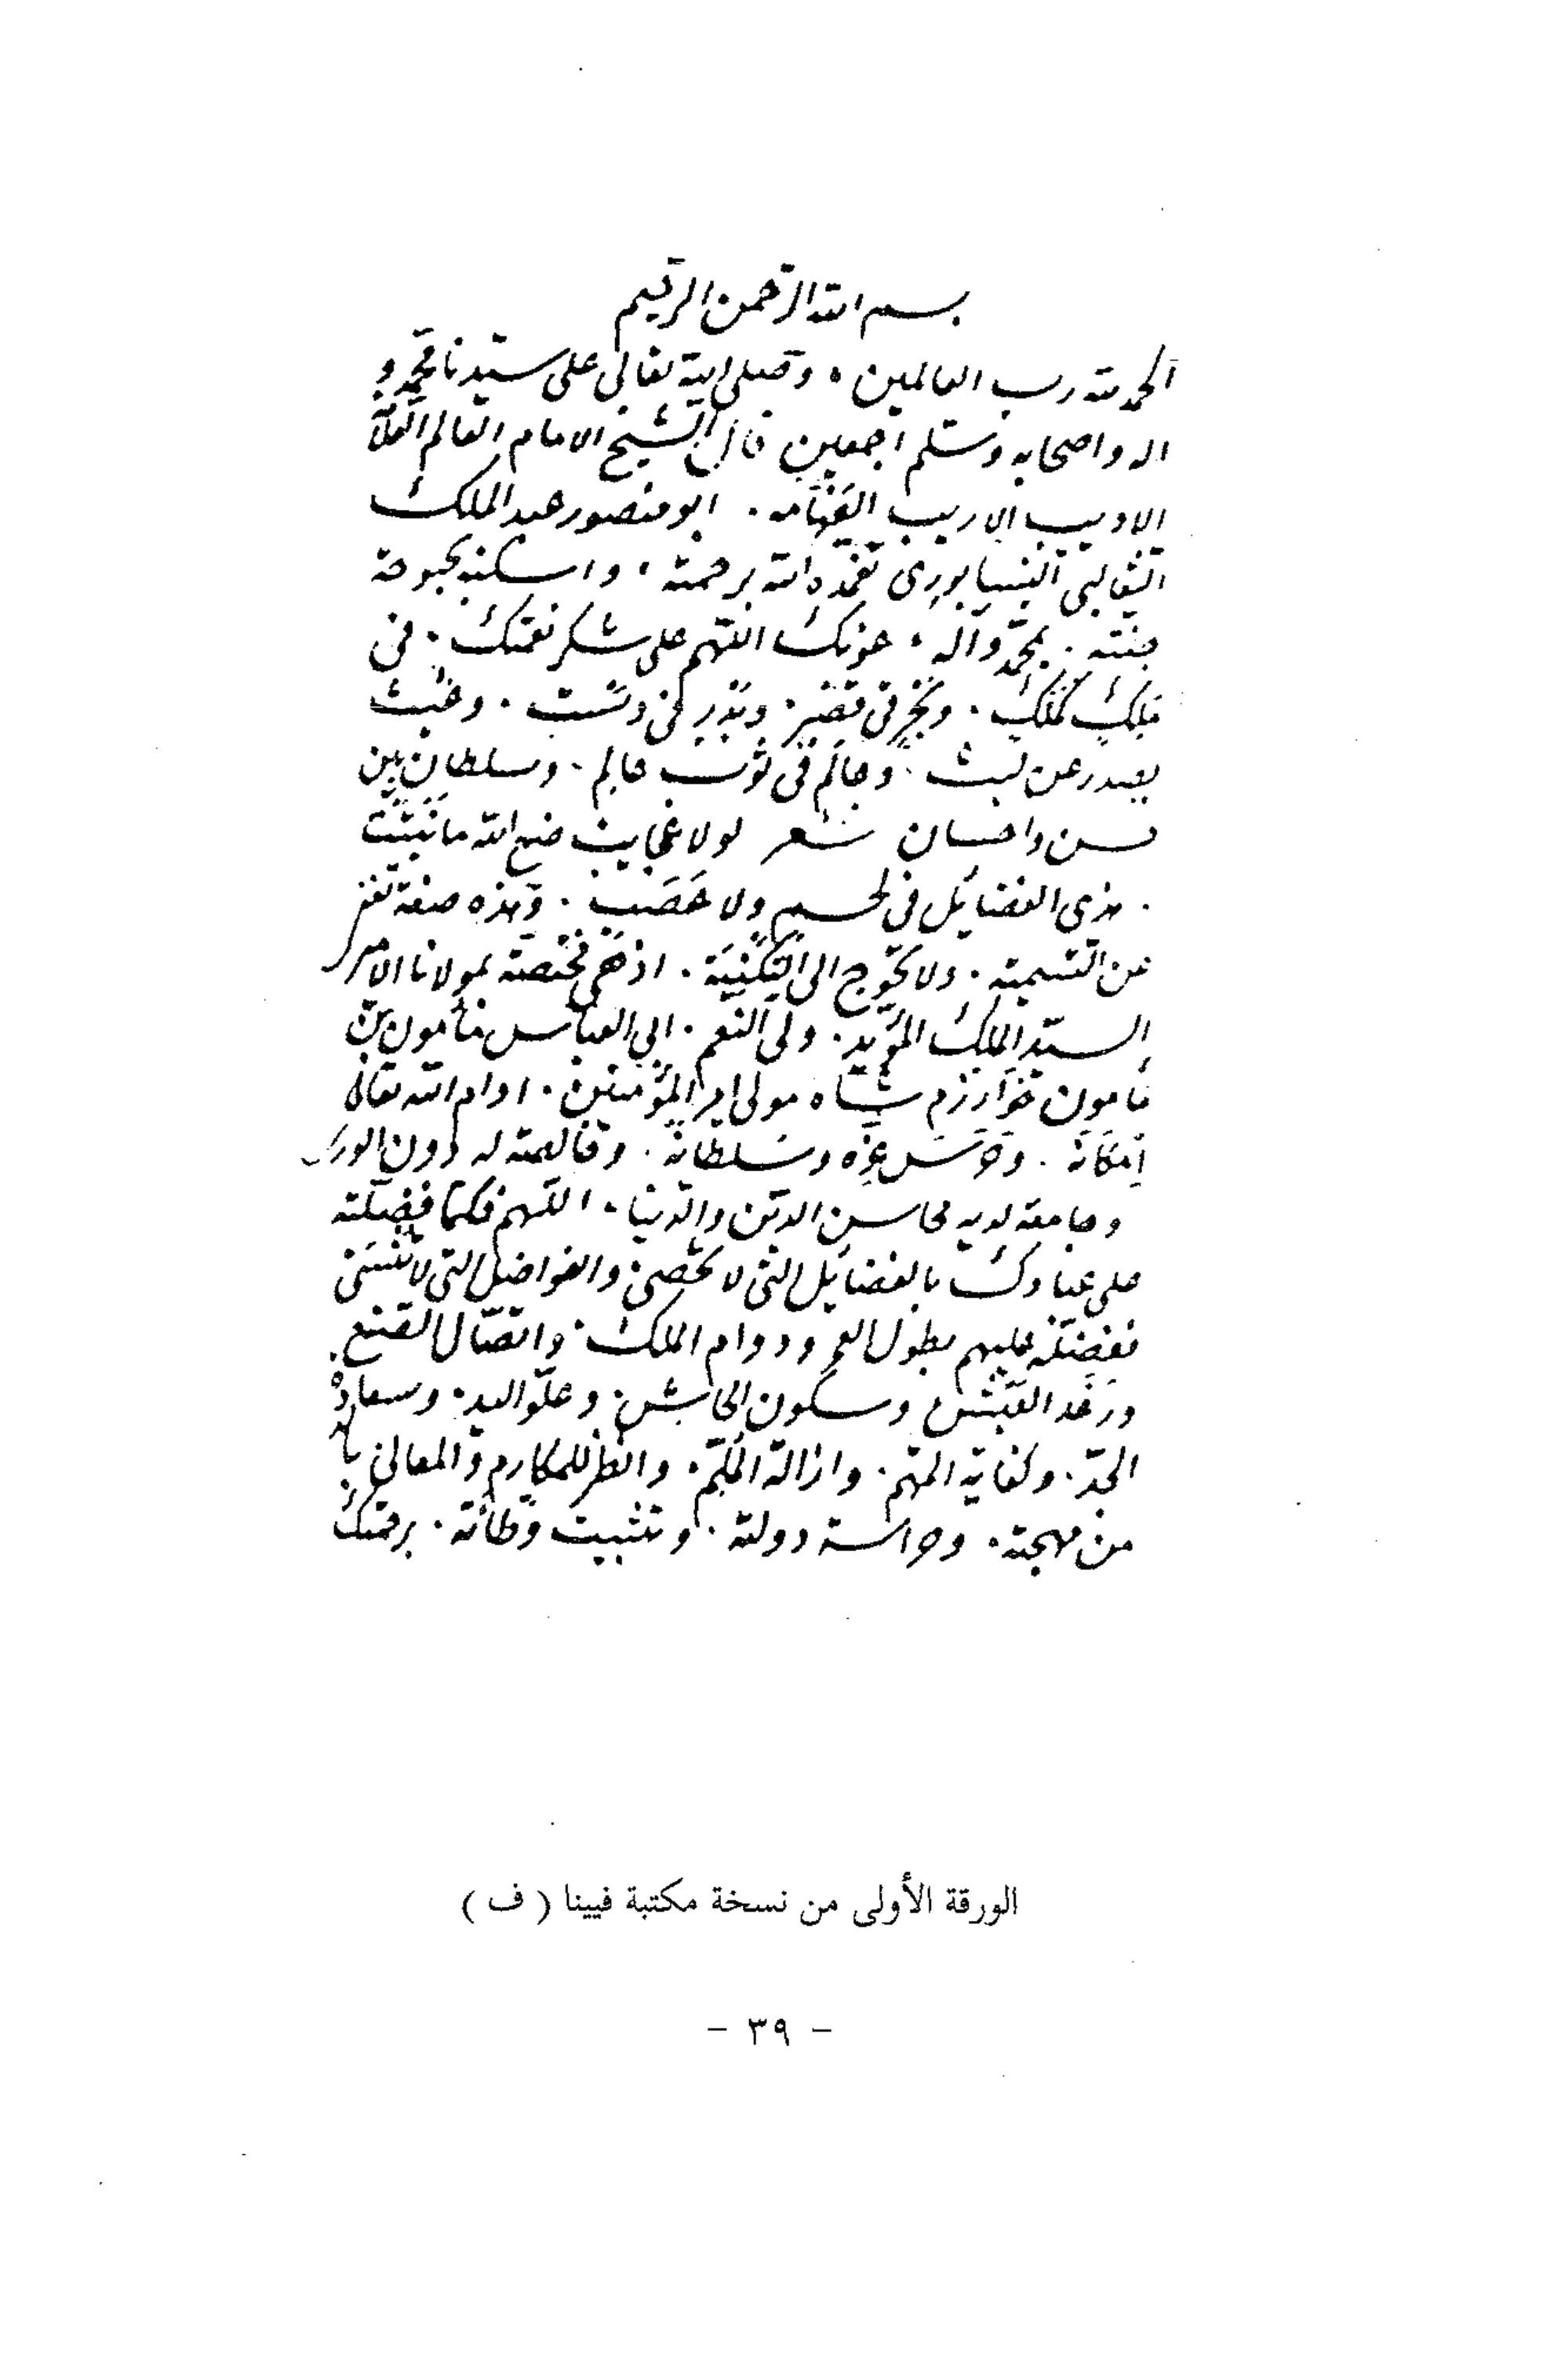 بسم الله الرحمن الرحيم
الحمد لله رب العالمين . وصلى الله تعالى على سيدنا محمد و
اله واصحابه وسلم اجمعين قال الشيخ الامام العالم العلا
الاديب الاريب الفهامه . ابو منصور عبد الملك
الثعالبى النيسابورى تغمده الله برحمته ، واسكنه بحبوحة
جنته . بمحمد وآله ، عونك اللهم على شكر نعمتك . فى
ملك كملك . وبحر فى قصر . وبدر فى دست . وغيث
يصدر عن ليث . وعالم فى ثوب عالم . وسلطان بين
حسن واحسان شعر لولا عجايب صنع الله ما نبتت
. هذى الفضائل فى لحم ولا عصب . وهذه صفة تغنى
عن التسمية . ولا تحوج الى التكنية . اذ هى مختصة بمولانا الامير
السيد الملك المؤيد . ولى النعم . ابى العباس مأمون بن
مأمون خوارزم شاه مولى امير المؤمنين . ادام الله تعالى
امكانه . وحرس عزه وسلطانه . وخالصة له دون الورى
وجامعة لديه محاسن الدين والدنيا . اللهم فكما فضلته
على عبادك بالفضائل التى لا تحصى والفواضل التى لا تنسى
ففضله عليهم بطول العمر ودوام الملك . واتصال الصنع .
ورغد العيش وسكون الجاش . وعلو اليد . وسعادة
الجد . وكفاية المهم . وازالة الملم . وانظر للمكارم والمعالى
من مهجته . وحراسة دولته . وتثبيت وطأته . برحمتك
الورقة الأولى من نسخة مكتبة فيينا ( ف )
- ٣٩ -